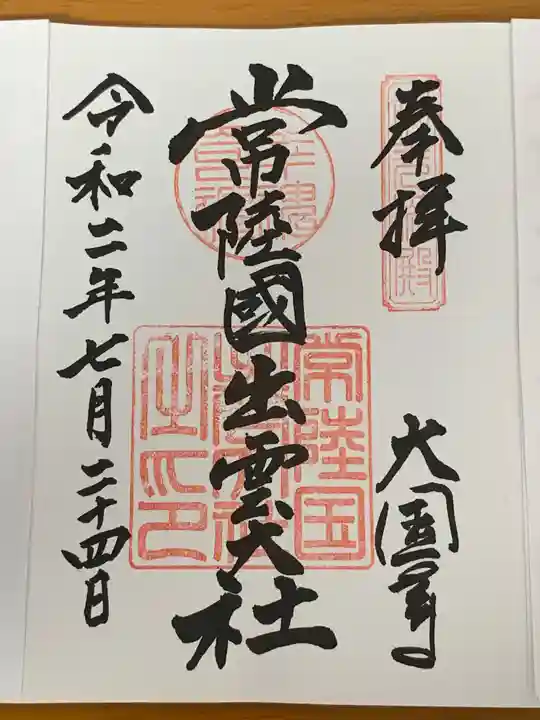 奉拝
大国
常陸國出雲大社
令和二年七月二十四日
常陸国
之印
殿